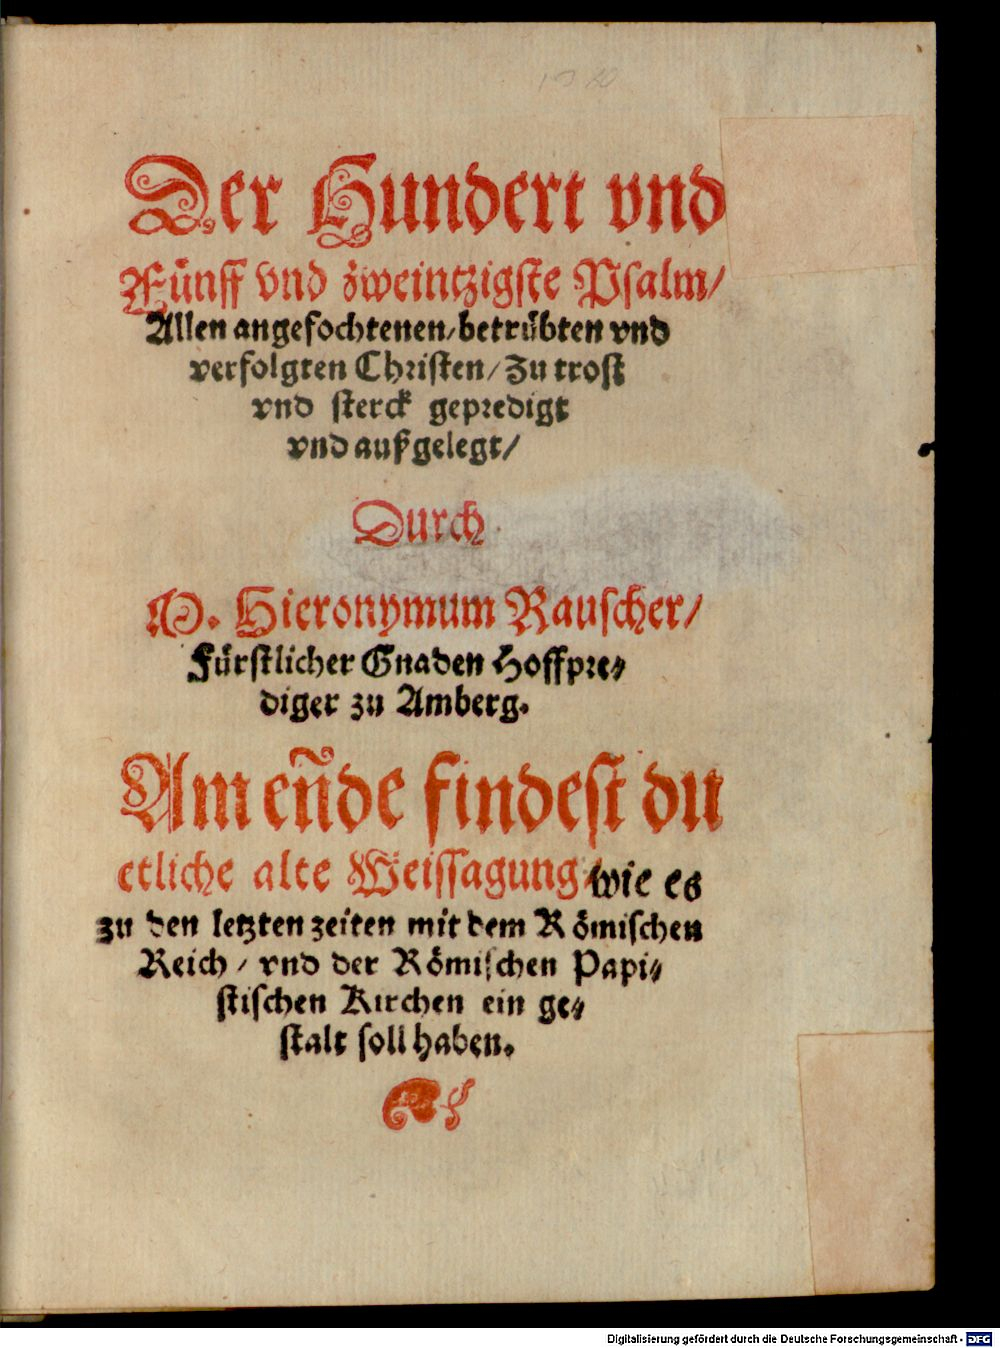 Der Hundert vnd
Fünff vnd zweintzigste Psalm/
Allen angefochtenen/betrübten vnd
verfolgten Christen/Zu trost
vnd sterck gepredigt
vnd außgelegt/
Durch
M. Hieronymum Rauscher/
Fürstlicher Gnaden Hoffpre-
diger zu Amberg.
Am eñde findest du
etliche alte Weissagung/wie es
zu den letzten zeiten mit dem Römischen
Reich/vnd der Römischen Papi-
stischen Kirchen ein ge-
stalt soll haben.
Digitalisierung gefördert durch die Deutsche Forschungsgemeinschaft - DFG